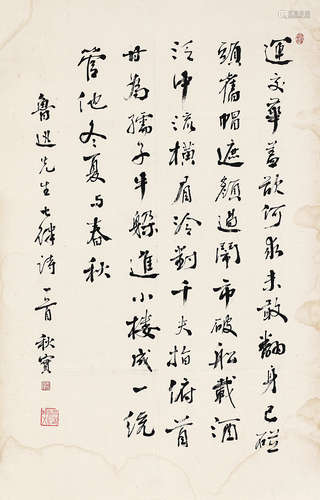 運交華蓋欲何求未敢翻身已碰
頭舊帽遮顏過鬧市破船載酒
泛中流橫眉冷對千夫指俯首
甘為孺子牛躲進小楼成一統
管他冬夏与春秋
魯迅先生七律詩一首 秋實